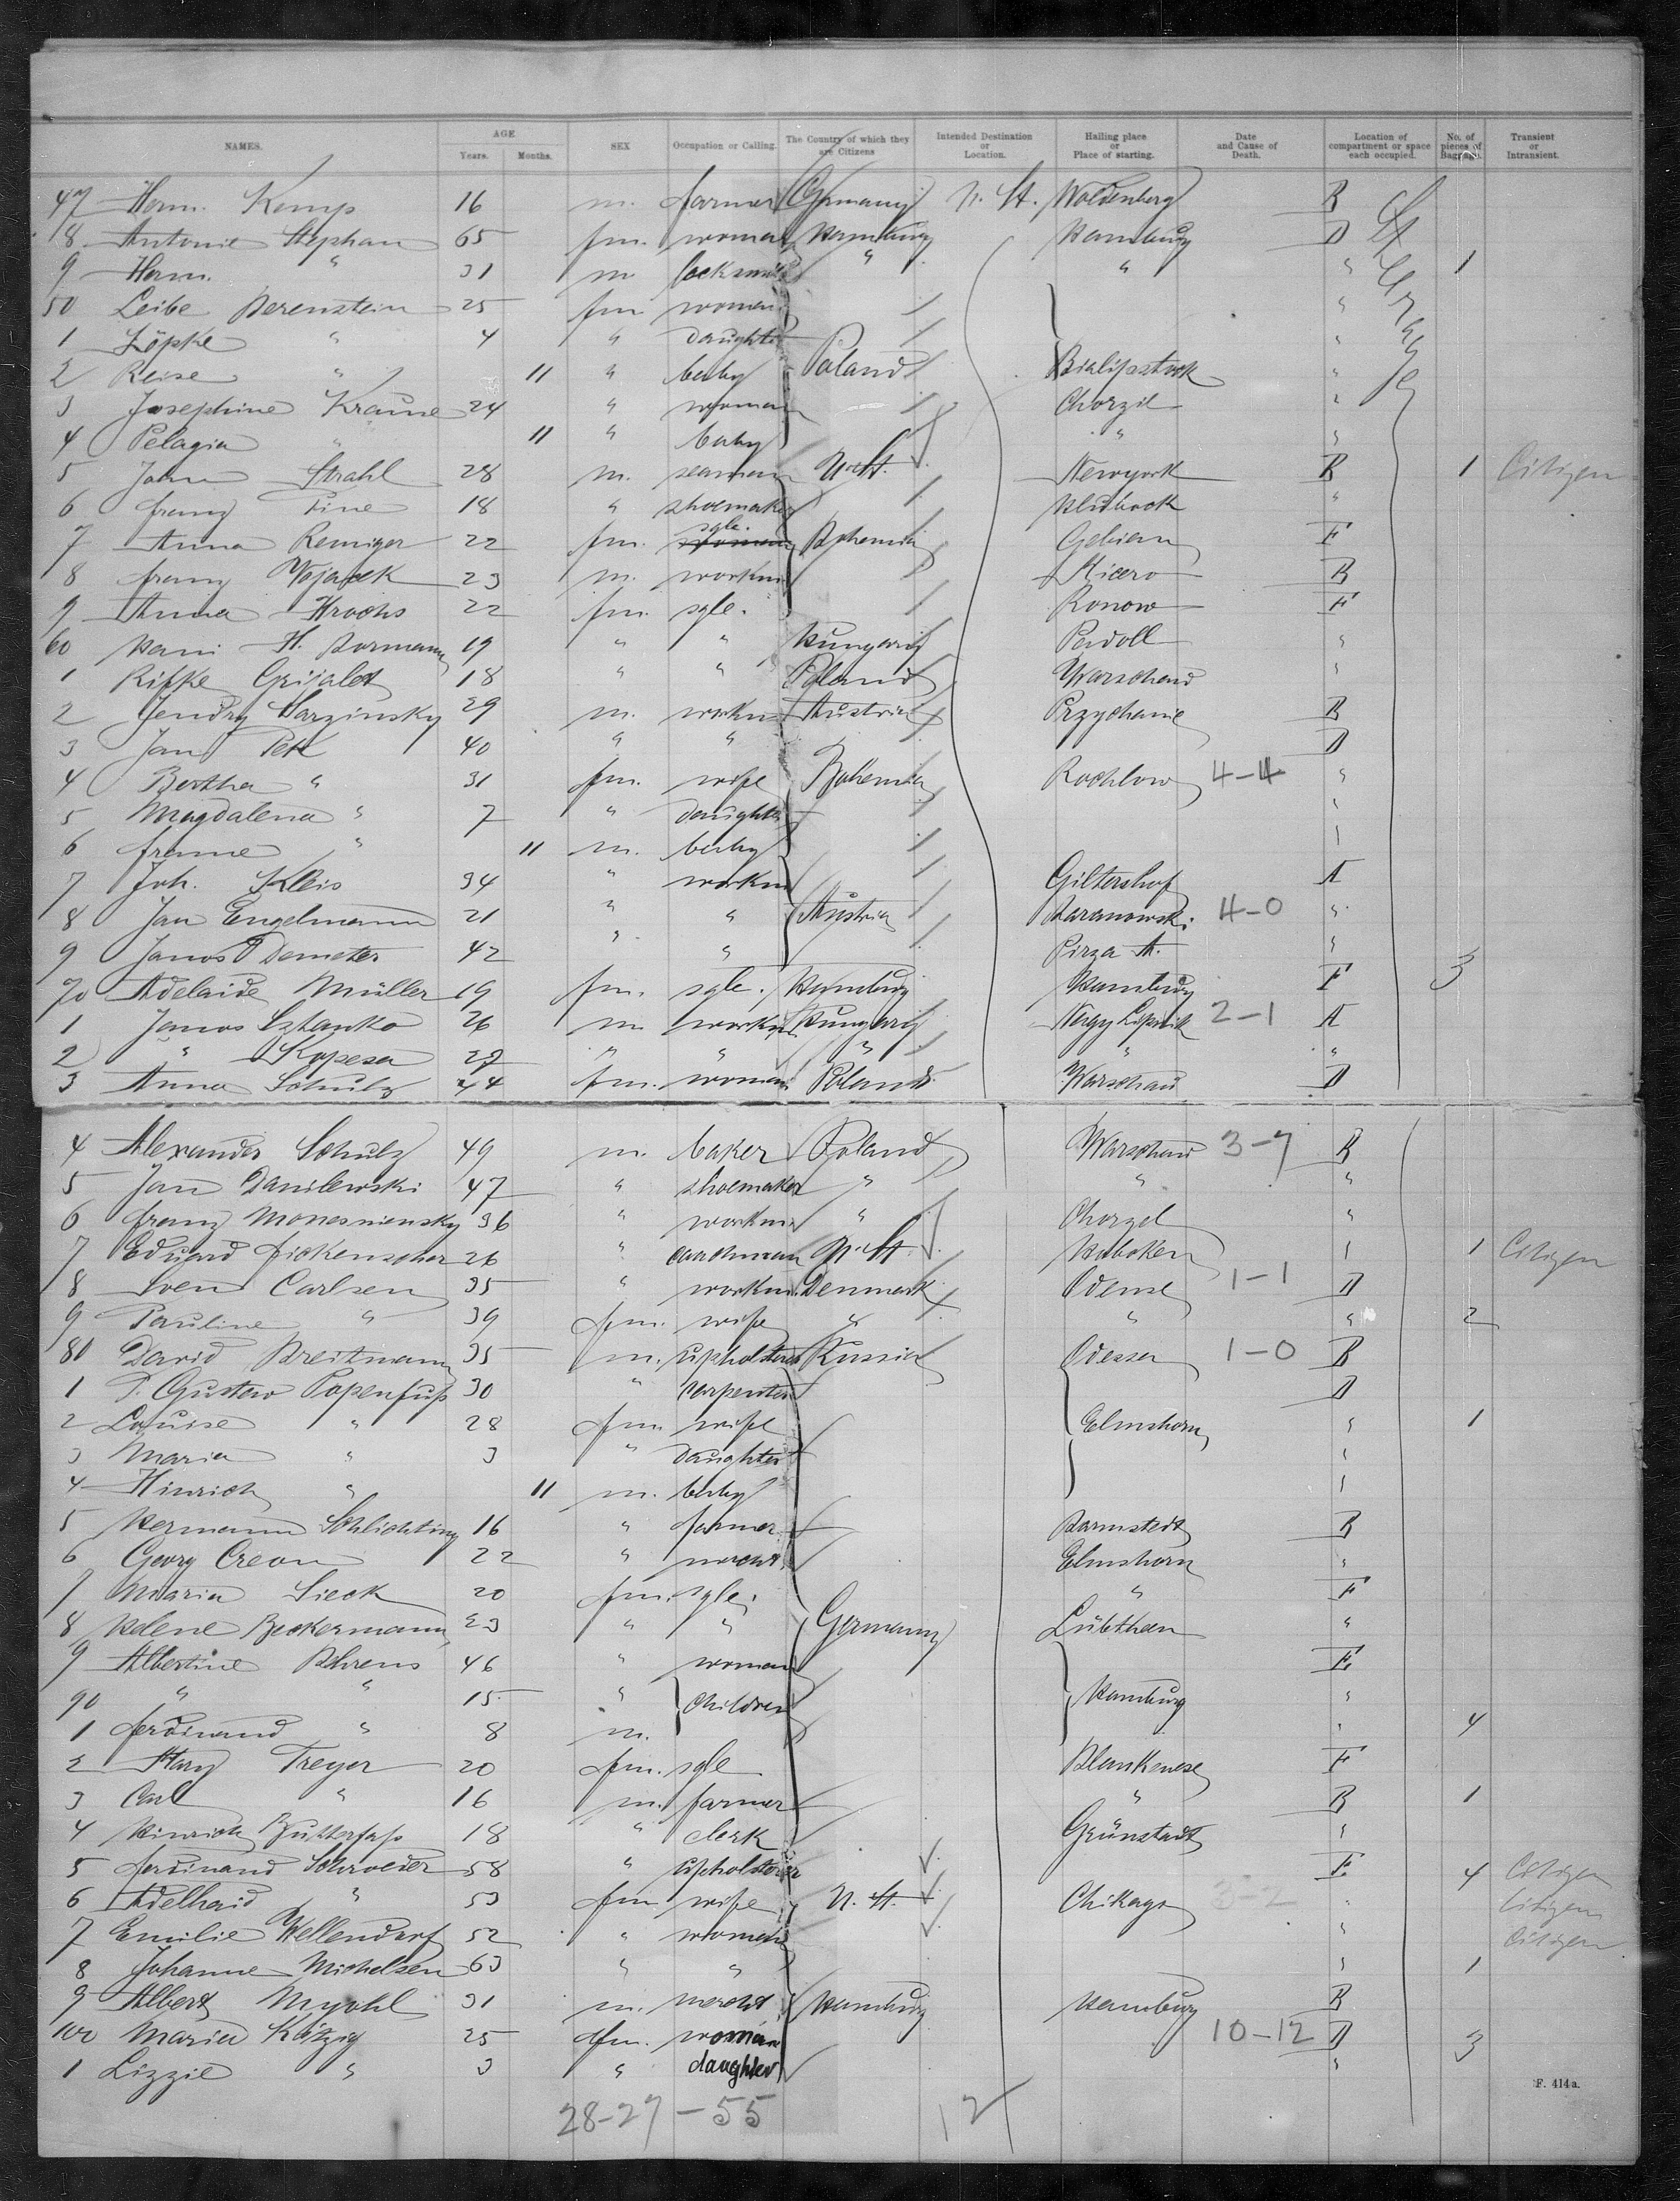 NAMES. AGE Years. Months. SEX Occupation or Calling. The Country of which they are Citizens Intended Destination or Location. Hailing place or Place of starting. Date and Cause of Death. Location of compartment or space each occupied. No. of pieces of Baggage. Transient or Intransient.
47 Herm. Kemp 16 m. farmer Germany U. St. Woldenberg B
8 Antonie Stephan 65 fm. woman Hamburg Hamburg D
9 Herm. " 31 m locksmith " " " 1
50 Leibe Berenstein 25 fm. woman "
1 Löpke " 4 " daughter "
2 Reise " 11 " baby Poland Bialisstock "
3 Josephine Krause 24 " woman Chorzil "
4 Pelagia " 11 " baby " "
5 John Strahl 28 m. seaman U. St. Newyork B 1 Citizen
6 franz Fine 18 " shoemaker "
7 Anna Reminger 22 fm. sgle. Bohemia Gebian F
8 franz Wojacek 23 m. workm B
9 Anna Hrochs 22 fm. sgle. Ronow F
60 Hani H. Bormann 19 " " Hungary Perdoll "
1 Rifke 18 " " Poland Warschau "
2 Jendry Sarzinsky 29 m. workm Austria B
3 Jan Pek 40 " " D
4 Bertha " 31 fm. wife Bohemia Rochlow 4-4 "
5 Magdalena " 7 " daughter "
6 frame " 11 m. baby "
7 Joh. Kleis 34 " workm Giltershof A
8 Jan Engelmann 21 " " Austria Baranowski 4-0 "
9 Janos Demeter 42 " " Pirza A. "
70 Adelaide Müller 19 fm. sgle. Hamburg Hamburg F 3
1 Janos Sztanko 26 m workm Hungary 2-1 A
2 " Kopesa 27 " " " " "
3 Anna Schulz 44 fm. woman Poland Warschau D
4 Alexander Schulz 49 m. baker Poland Warschau 3-7 B
5 Jan Danilewski 47 " shoemaker " " "
6 franz Monesniensky 36 " workm " Chorzel "
7 Eduard fickenscher 26 " coachman U. St. Hoboken " 1 Citizen
8 Sven Carlsen 35 " workm. Denmark Odense 1-1 D
9 Pauline " 39 fm. wife " " " 2
80 David Breitmann 35 m. upholsterer Russia Odessa 1-0 B
1 P. Gustav Popenfuss 30 " carpenter D
2 Louise " 28 fm. wife Elmshorn " 1
3 Maria " 3 " daughter "
4 Hinrich " 11 m. baby "
5 Hermann Schlichting 16 " farmer Barmstedt B
6 Georg Creon 22 " mercht. Elmshorn "
7 Maria Sieck 20 fm. sgle. " F
8 Helene Beckermann 23 " " Germany Lübtheen "
9 Albertine Behrens 46 " woman E
90 " " 15 " children Hamburg "
1 ferdinand " 8 m. " 4
2 Mary Treyer 20 fm. sgle Blankenese F
3 Carl " 16 m. farmer " B 1
4 Hinrich Butterfass 18 " clerk Grünstadt "
5 ferdinand Schroeder 58 " upholsterer E 4 Citizen
6 Adelheid " 53 fm wife U. St. Chikago 3-2 " Citizen
7 Emilie Wellendorf 52 " woman " Citizen
8 Johanne Michelsen 63 " " " 1
9 Albert 31 m. mercht Hamburg Hamburg B
100 Maria Kätzig 25 fm. woman 10-12 D 3
1 Lizzie " 3 " daughter "
F. 414a.
28-27-55 12